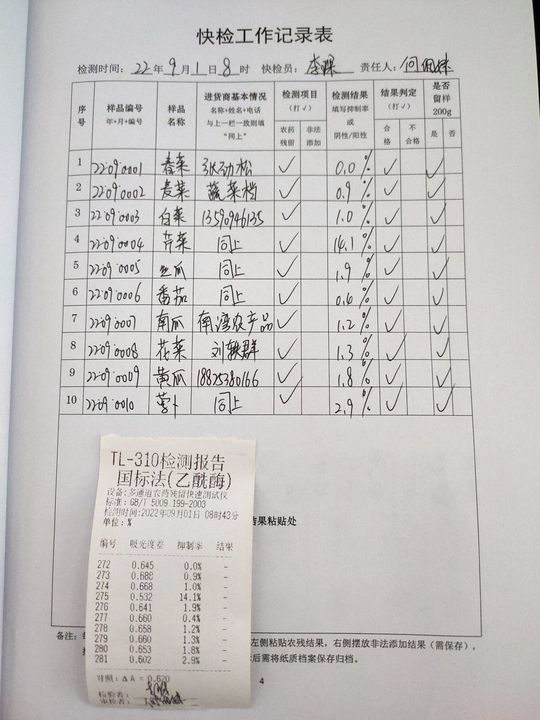 快检工作记录表
检测时间：22年9月1日8时 快检员：李 责任人：何佩
序号 样品编号 年+月+编号 样品名称 进货商基本情况 名称+姓名+电话 与上一栏一致则填“同上” 检测项目（打√） 农药残留 非法添加 检测结果 填写抑制率或阴性/阳性 结果判定（打√） 合格 不合格 是否留样200g 是 否
1 22090001 春菜 张劲松 √ 0.0% √ √
2 22090002 麦菜 蔬菜档 √ 0.9% √ √
3 22090003 白菜 13590946135 √ 1.0% √ √
4 22090004 芹菜 同上 √ 14.1% √ √
5 22090005 丝瓜 同上 √ 1.9% √ √
6 22090006 番茄 同上 √ 0.6% √ √
7 22090007 南瓜 南湾农产品 √ 1.2% √ √
8 22090008 花菜 刘群 √ 1.3% √ √
9 22090009 黄瓜 18825380166 √ 1.8% √ √
10 22090010 萝卜 同上 √ 2.9% √ √
TL-310检测报告
国标法(乙酰酶)
设备:多通道农药残留快速测试仪
标准: GB/T 5009.199-2003
检测时间:2022年09月01日 08时43分
单位:%
结果粘贴处
编号 吸光度差 抑制率 结果
272 0.645 0.0% -
273 0.688 0.9% -
274 0.668 1.0% -
275 0.532 14.1% -
276 0.641 1.9% -
277 0.660 0.4% -
278 0.658 1.2% -
279 0.660 1.3% -
280 0.653 1.8% -
281 0.602 2.9% -
对照: ΔA = 0.620
检验者:
审核者:
备注：
左侧粘贴农残结果，右侧摆放非法添加结果（需保存），
后需将纸质档案保存归档。
4